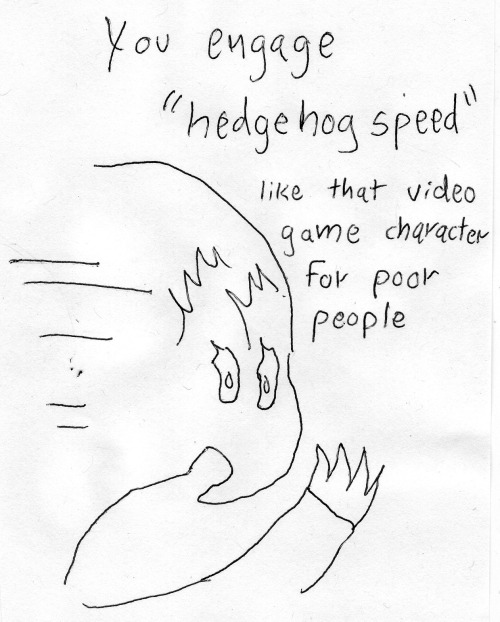 You engage
"hedgehog speed"
like that video
game character
for poor
people